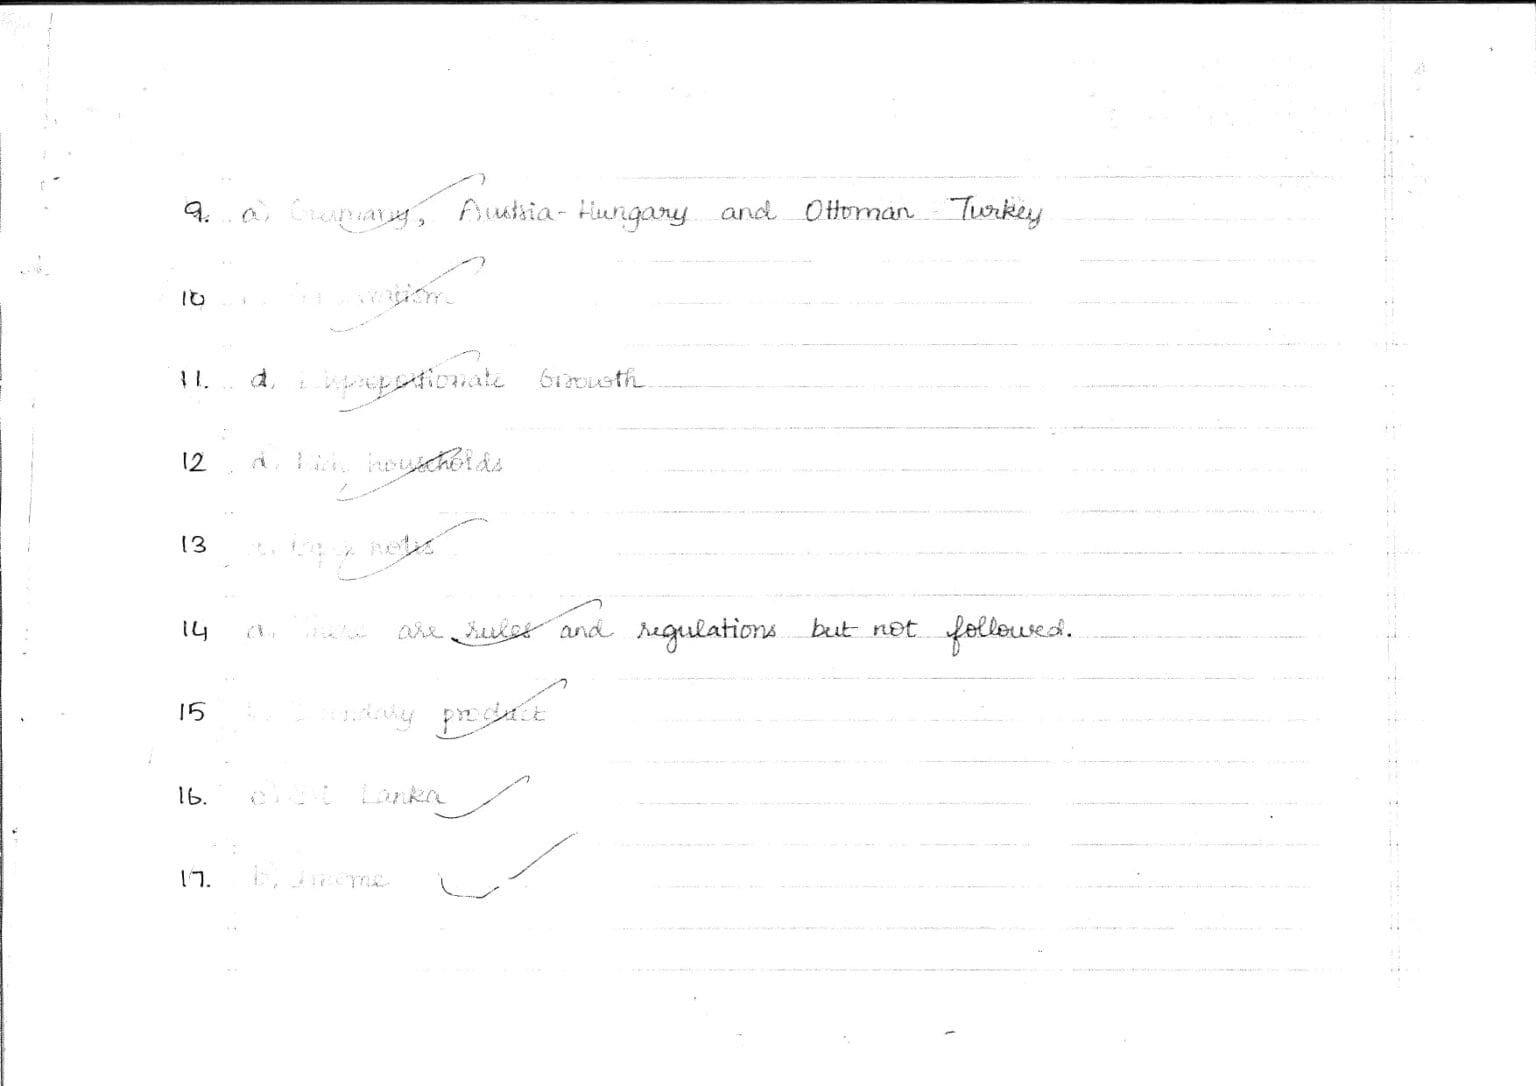 9. a) Germany, Austria-Hungary and Ottoman Turkey
10
11. d. Disproportionate Growth
12 d. Rich households
13 notes
14 a. There are rules and regulations but not followed.
15 product
16. c) Sri Lanka
17. b. Income